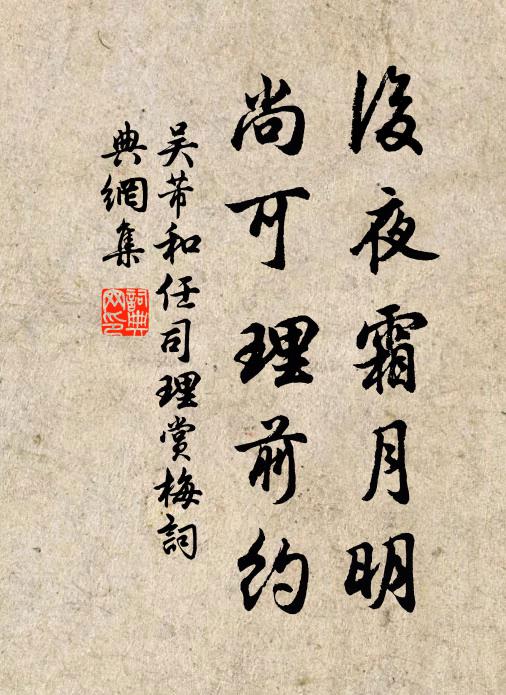 後夜霜月明
尚可理前約
吴芾和任司理賞梅詞
典網集
詞典
网印